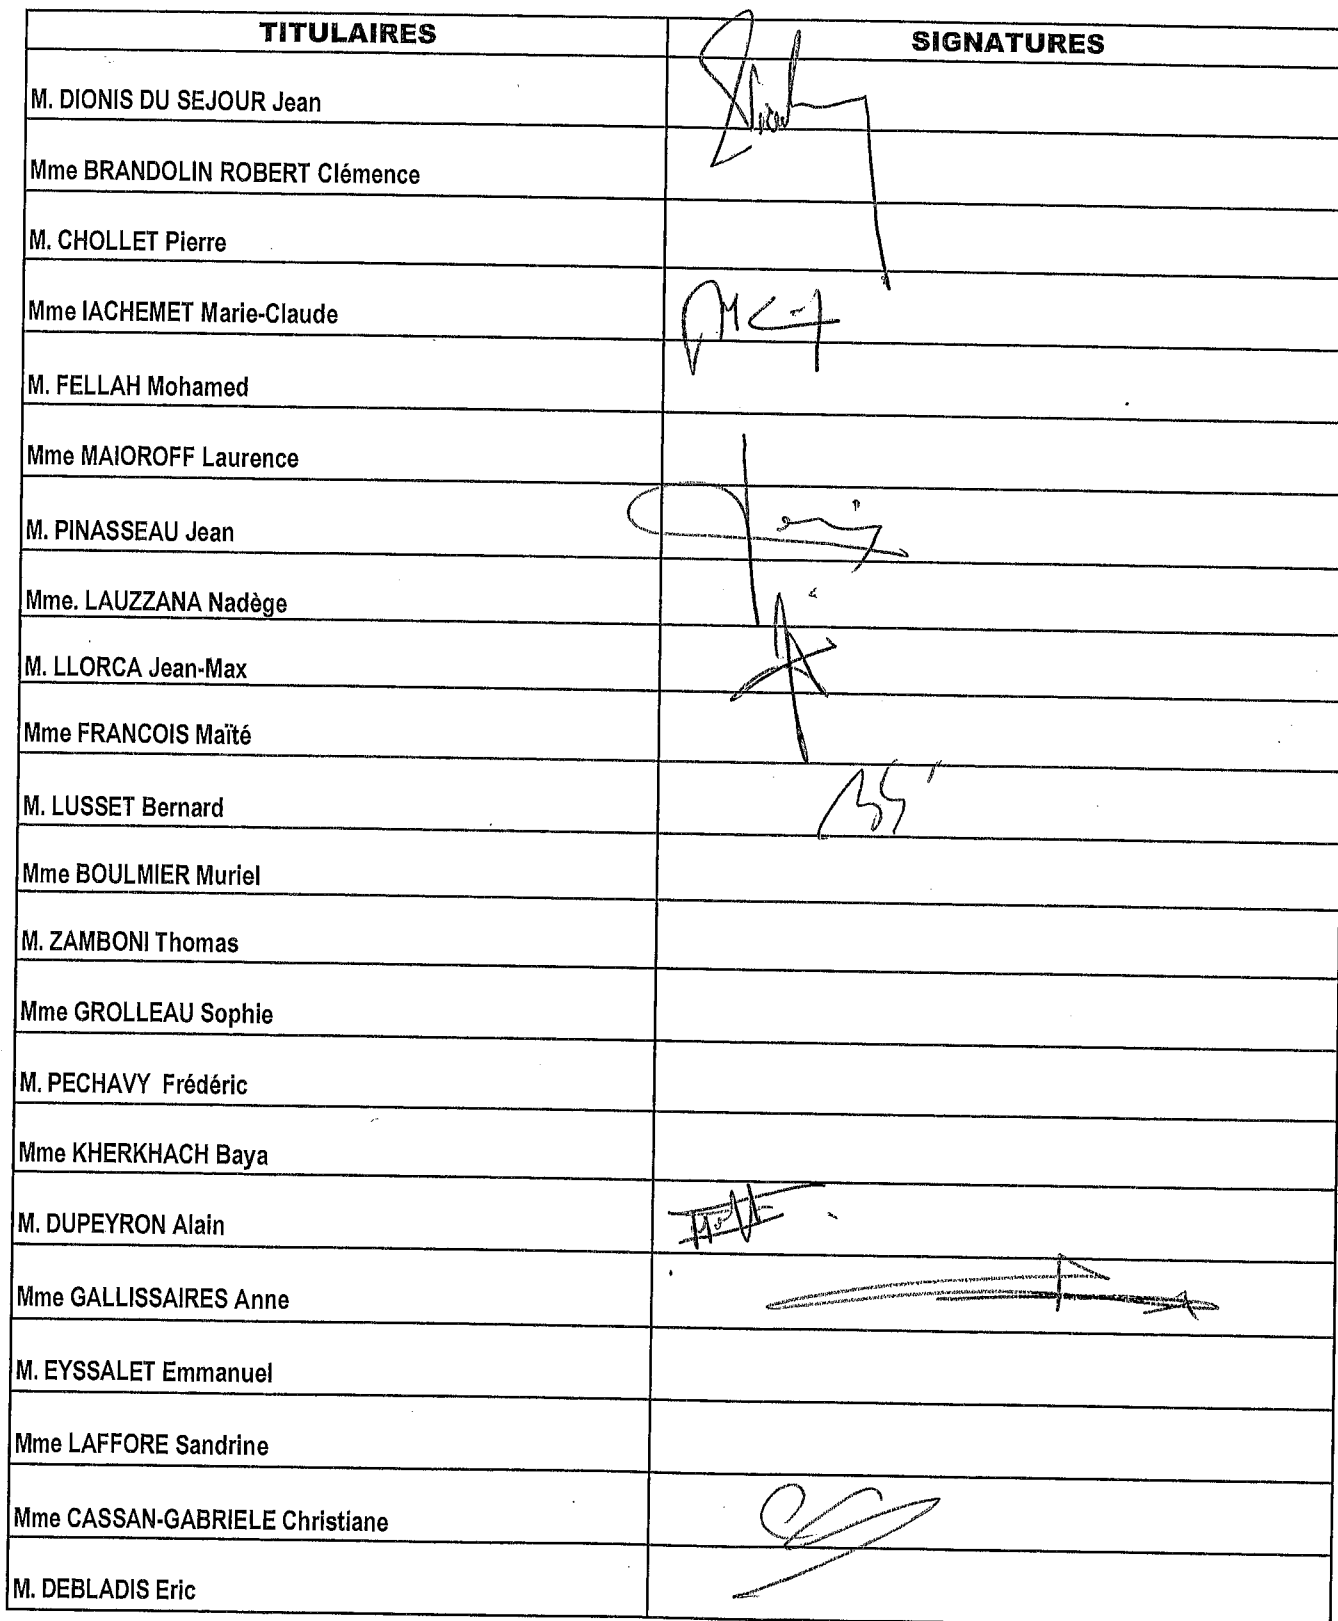 TITULAIRES SIGNATURES
M. DIONIS DU SEJOUR Jean
Mme BRANDOLIN ROBERT Clémence
M. CHOLLET Pierre
Mme IACHEMET Marie-Claude
M. FELLAH Mohamed
Mme MAIOROFF Laurence
M. PINASSEAU Jean
Mme. LAUZZANA Nadège
M. LLORCA Jean-Max
Mme FRANCOIS Maïté
M. LUSSET Bernard
Mme BOULMIER Muriel
M. ZAMBONI Thomas
Mme GROLLEAU Sophie
M. PECHAVY Frédéric
Mme KHERKHACH Baya
M. DUPEYRON Alain
Mme GALLISSAIRES Anne
M. EYSSALET Emmanuel
Mme LAFFORE Sandrine
Mme CASSAN-GABRIELE Christiane
M. DEBLADIS Eric